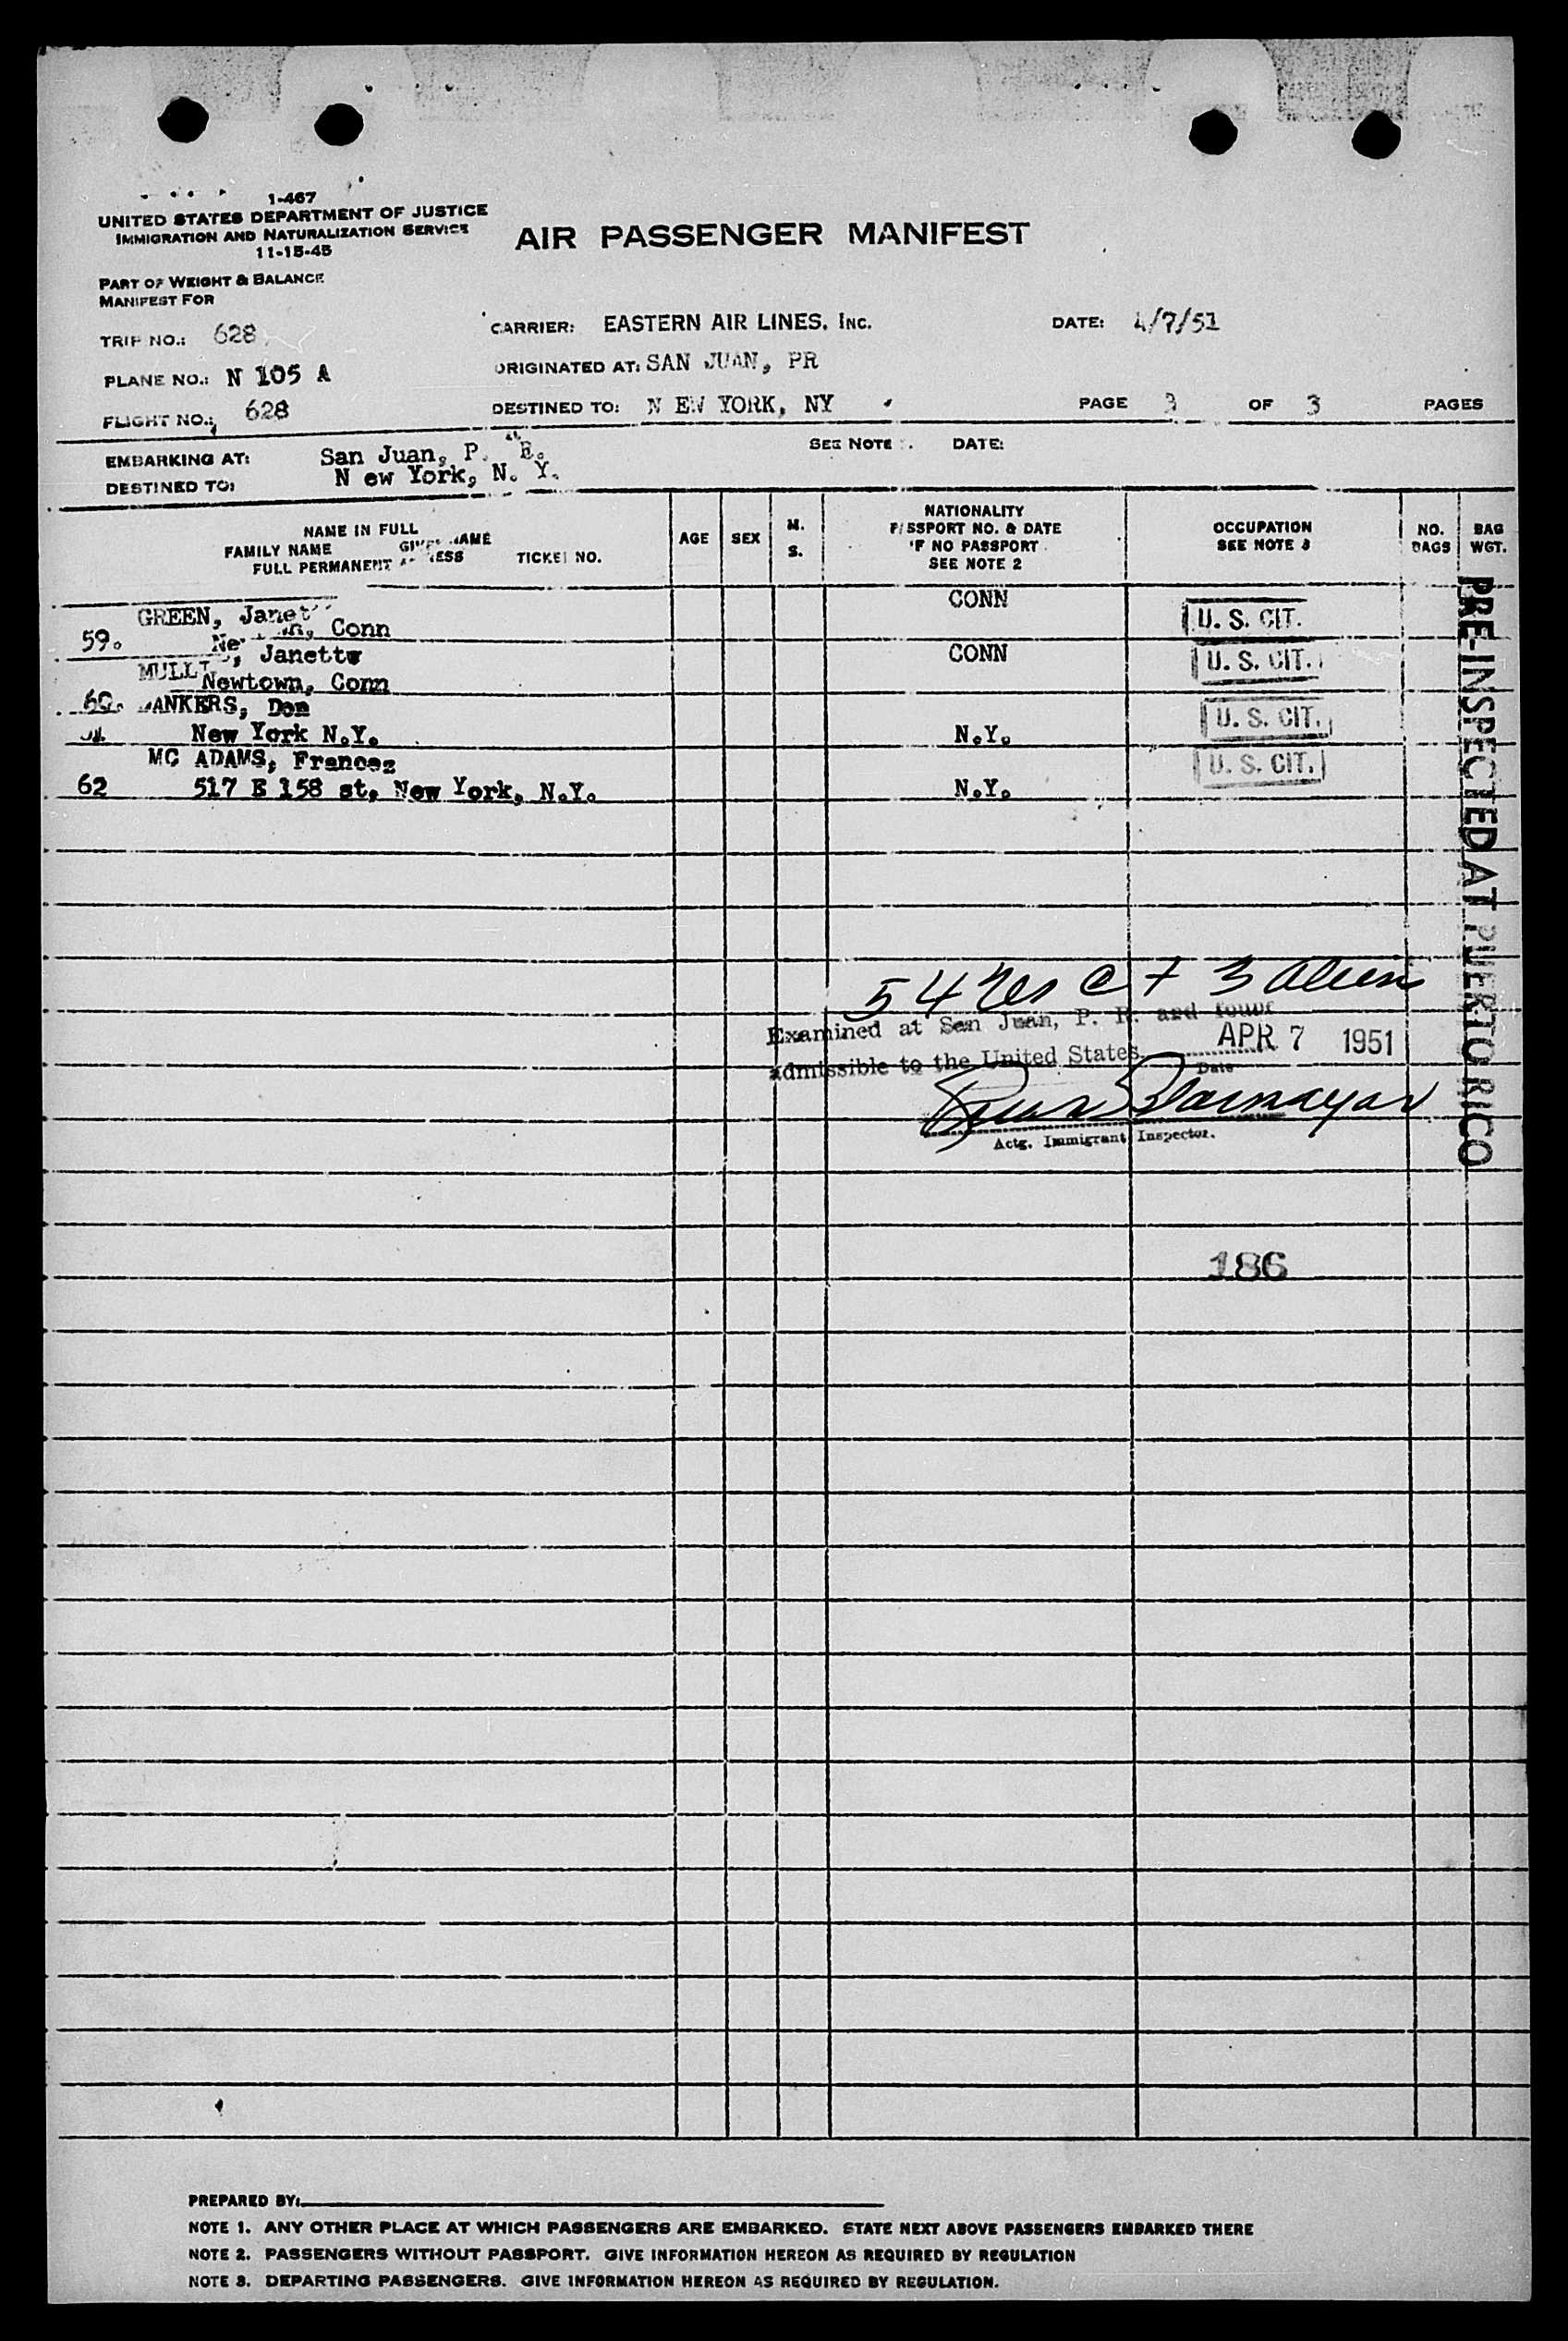 1-467
UNITED STATES DEPARTMENT OF JUSTICE
IMMIGRATION AND NATURALIZATION SERVICE
11-15-45
AIR PASSENGER MANIFEST
PART OF WEIGHT & BALANCE
MANIFEST FOR
TRIP NO.: 628
CARRIER: EASTERN AIR LINES, INC.
DATE: 4/7/51
PLANE NO.: N 105 A
ORIGINATED AT: SAN JUAN, PR
FLIGHT NO.: 628
DESTINED TO: N EW YORK, NY
PAGE 3 OF 3 PAGES
EMBARKING AT: San Juan, P.
SEE NOTE DATE:
DESTINED TO: N ew York, N. Y.
NAME IN FULL
FAMILY NAME GIVEN NAME
FULL PERMANENT ADDRESS TICKET NO.
AGE
SEX
M.
S.
NATIONALITY
PASSPORT NO. & DATE
IF NO PASSPORT
SEE NOTE 2
OCCUPATION
SEE NOTE 3
NO.
BAGS
BAG
WGT.
GREEN, Janet CONN U. S. CIT.
59. Conn
Janette CONN U. S. CIT.
60. Newtown, Conn
Don U. S. CIT.
New York N.Y. N.Y.
MC ADAMS, Frances U. S. CIT.
62 517 E 158 st, New York, N.Y. N.Y.
PRE-INSPECTED AT PUERTO RICO
54 C + 3 aliens
Examined at San Juan, P. R. and found
admissible to the United States. APR 7 1951
Date
Actg. Immigrant Inspector.
186
PREPARED BY:
NOTE 1. ANY OTHER PLACE AT WHICH PASSENGERS ARE EMBARKED. STATE NEXT ABOVE PASSENGERS EMBARKED THERE
NOTE 2. PASSENGERS WITHOUT PASSPORT. GIVE INFORMATION HEREON AS REQUIRED BY REGULATION
NOTE 3. DEPARTING PASSENGERS. GIVE INFORMATION HEREON AS REQUIRED BY REGULATION.